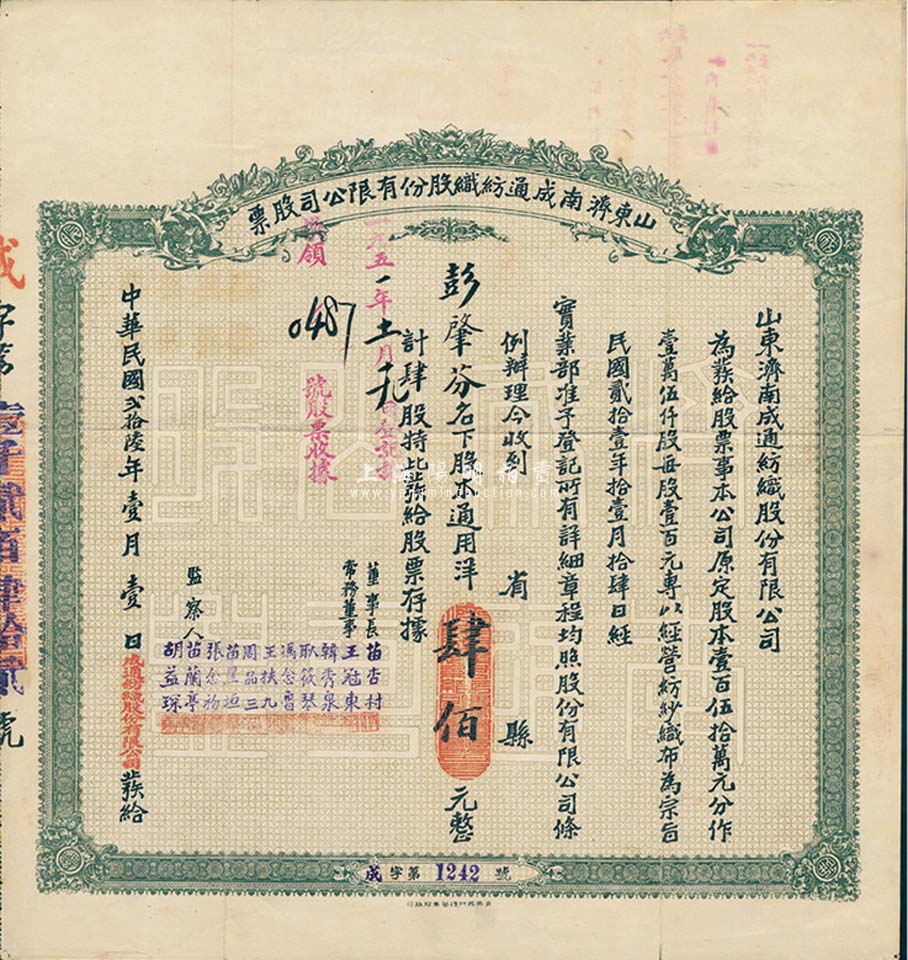 山東濟南成通紡織股份有限公司股票
山東濟南成通紡織股份有限公司
為發給股票事本公司原定股本壹百伍拾萬元分作
壹萬伍仟股每股壹百元專以經營紡紗織布為宗旨
民國貳拾壹年拾壹月拾肆日經
實業部准予登記所有詳細章程均照股份有限公司條
例辦理今收到 省 縣
彭肇芬名下股本通用洋肆佰元整
計肆股特此發給股票存據
董事長 苗杏村
常務董事 王冠東
韓秀泉
耿筱琴
馮念魯
王扶九
周品三
苗星垣
監察人 苗蘭亭
胡益琛
一九五一年十一月
領
0487
號股票收據
中華民國貳拾陸年壹月壹日成通紡織股份有限公司發給
成字第1242號
成字第壹仟貳百肆拾貳號
www.yangmingauction.com